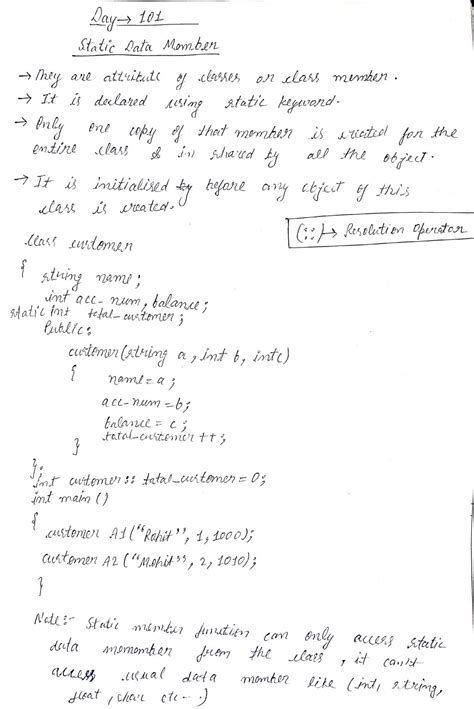 Day → 101
Static Data Member
→ They are attribute of classes or class member.
→ It is declared using static keyword.
→ Only one copy of that member is created for the
entire class & in shared by all the object.
→ It is initialised by before any object of this
class is created.
(::) → Resolution Operator
class customer
{ string name;
int acc_num, balance;
static int total_customer;
Public:
customer(string a, int b, int c)
{ name = a;
acc_num = b;
balance = c;
total_customer ++;
}
};
int customer :: total_customer = 0;
int main ()
{
customer A1 ("Rohit", 1, 1000);
customer A2 ("Mohit", 2, 1010);
}
Note:- Static member function can only access static
data memomber from the class, it can't
access usual data member like (int, string,
float, char etc - - )